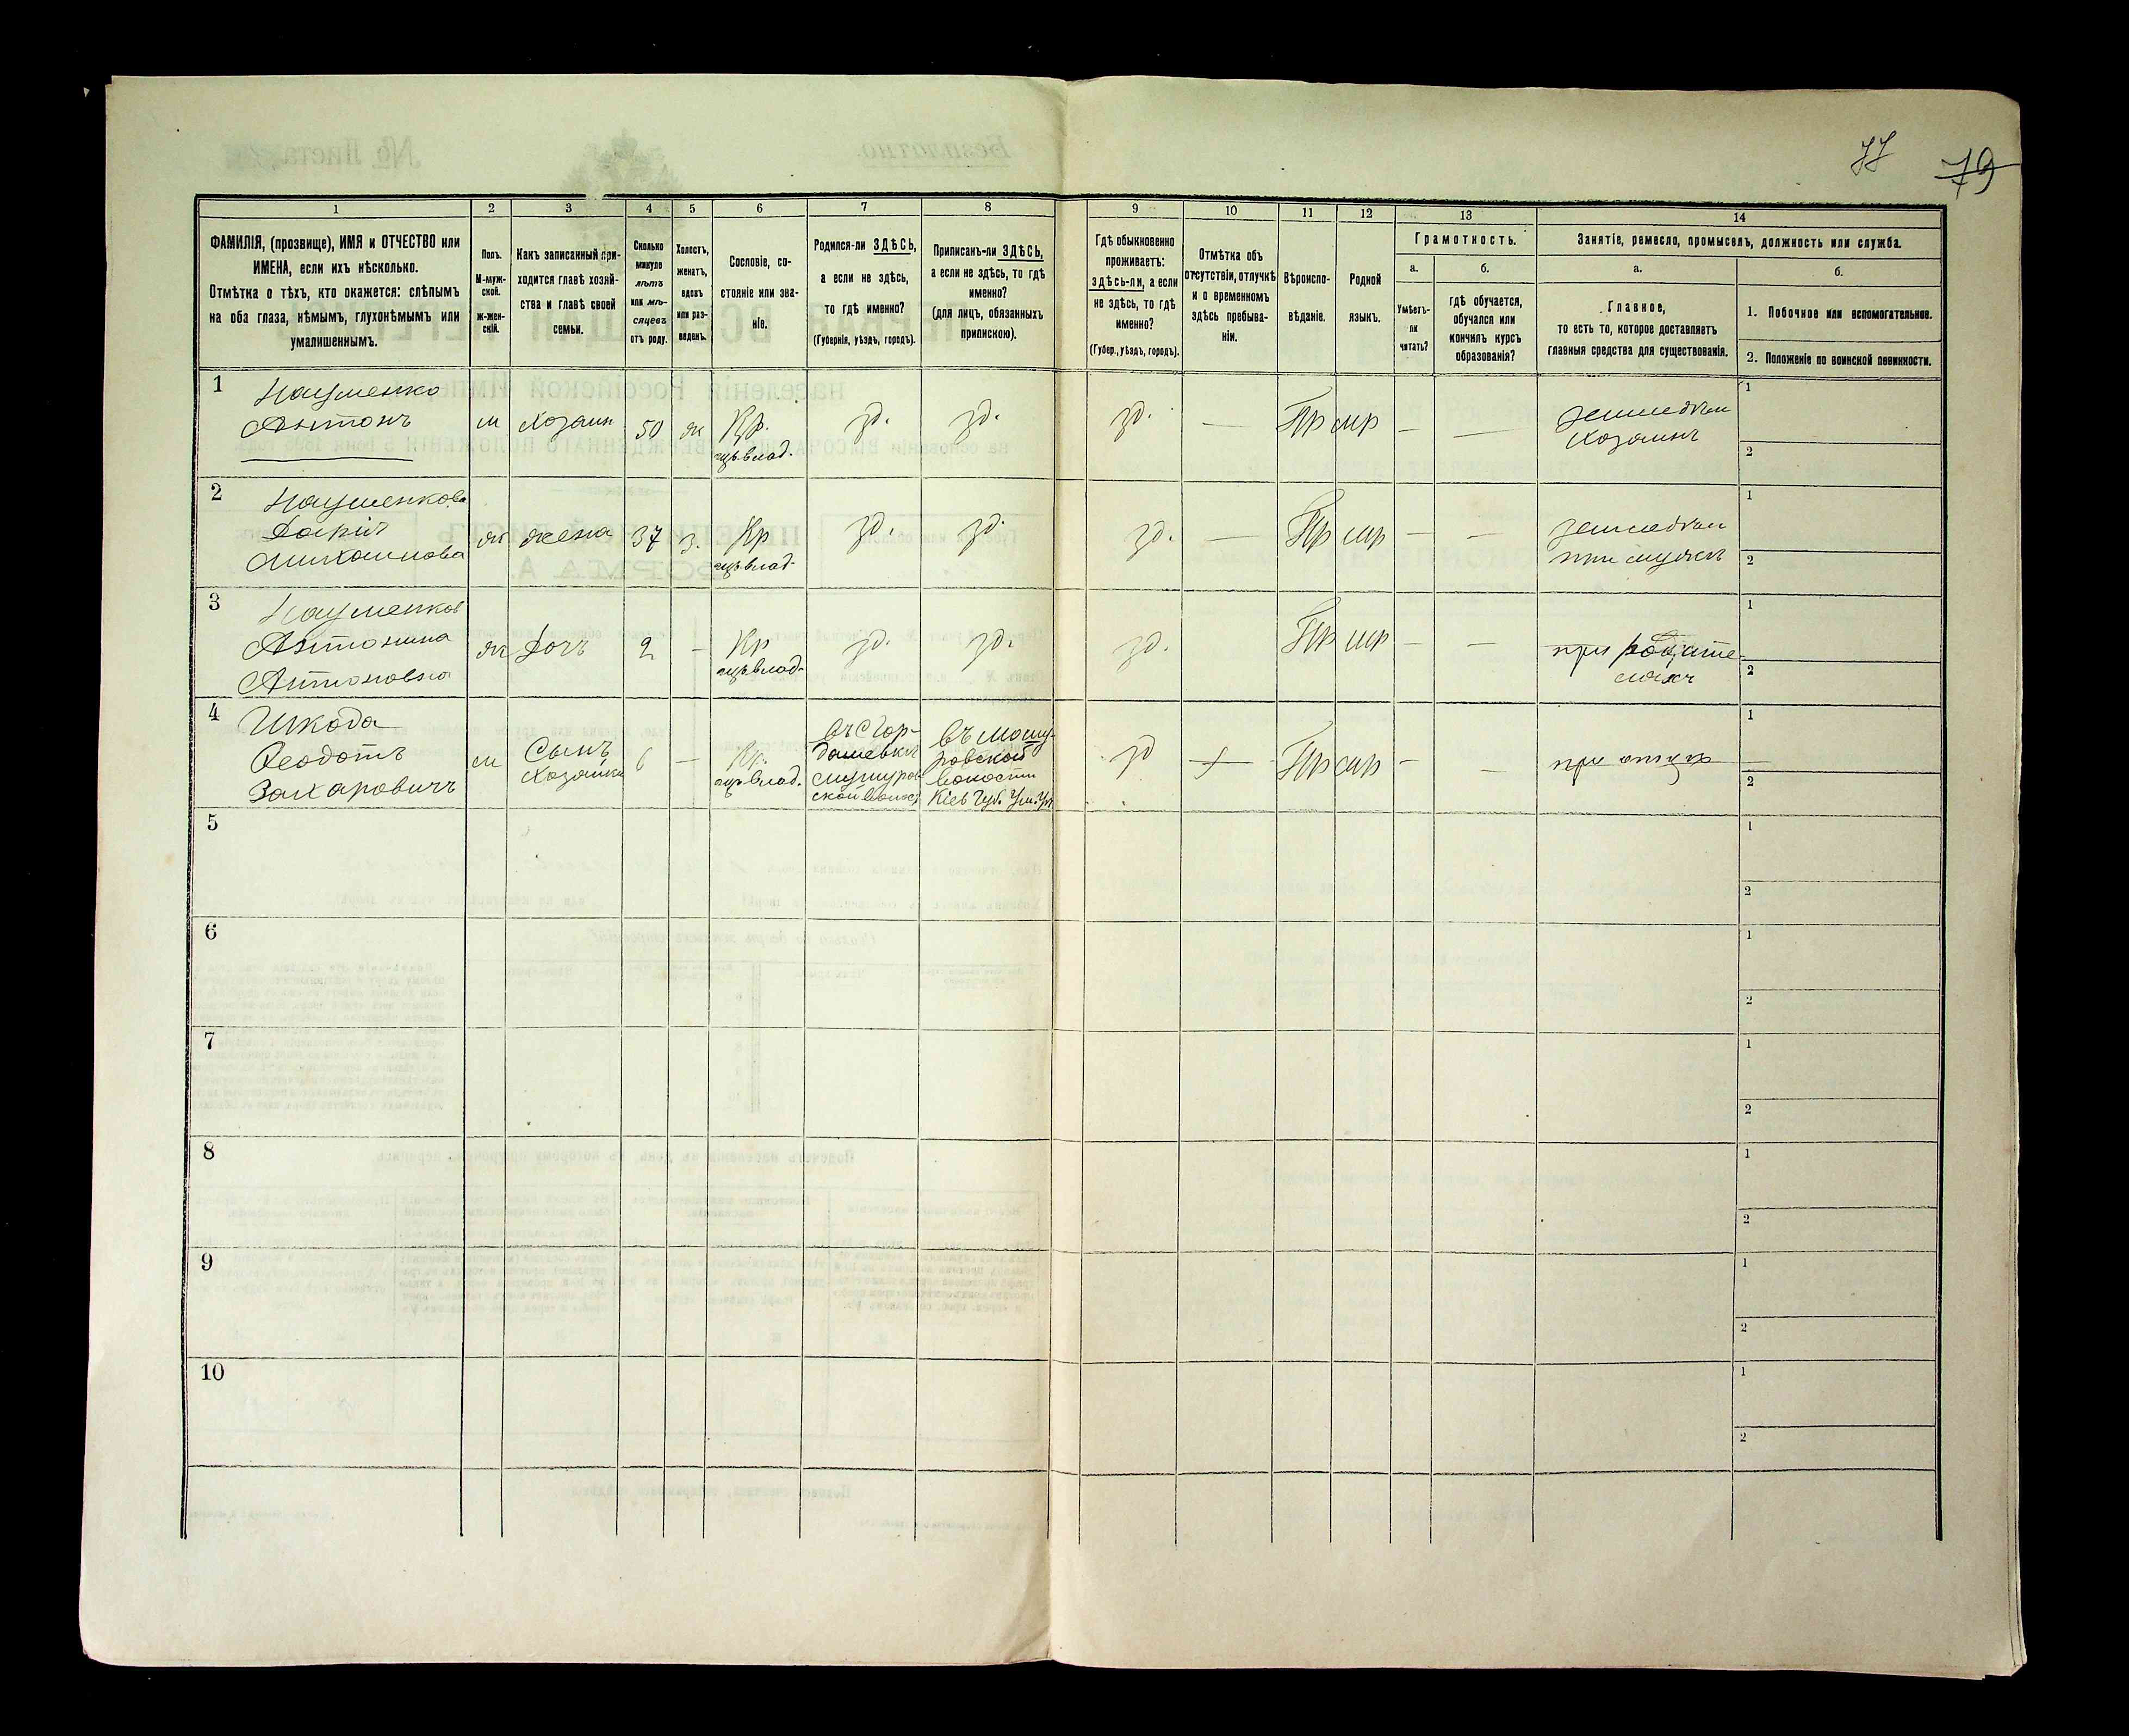 77 79
1 2 3 4 5 6 7 8 9 10 11 12 13 14
ФАМИЛІЯ, (прозвище), ИМЯ и ОТЧЕСТВО или
ИМЕНА, если ихъ нѣсколько.
Отмѣтка о тѣхъ, кто окажется: слѣпымъ
на оба глаза, нѣмымъ, глухонѣмымъ или
умалишеннымъ.
Полъ.
М-муж-
ской.
ж-жен-
скій.
Какъ записанный при-
ходится главѣ хозяй-
ства и главѣ своей
семьи.
Сколько
минуло
лѣтъ
или мѣ-
сяцевъ
отъ роду.
Холостъ,
женатъ,
вдовъ
или раз-
веденъ.
Сословіе, со-
стояніе или зва-
ніе.
Родился-ли ЗДѢСЬ,
а если не здѣсь,
то гдѣ именно?
(Губернія, уѣздъ, городъ).
Приписанъ-ли ЗДѢСЬ,
а если не здѣсь, то гдѣ
именно?
(для лицъ, обязанныхъ
припискою).
Гдѣ обыкновенно
проживаетъ:
здѣсь-ли, а если
не здѣсь, то гдѣ
именно?
(Губер., уѣздъ, городъ).
Отмѣтка объ
отсутствіи, отлучкѣ
и о временномъ
здѣсь пребыва-
ніи.
Вѣроиспо-
вѣданіе.
Родной
языкъ.
Грамотность.
а.
Умѣетъ-
ли
читать?
б.
гдѣ обучается,
обучался или
кончилъ курсъ
образованія?
Занятіе, ремесло, промыселъ, должность или служба.
а.
Главное,
то есть то, которое доставляетъ
главныя средства для существованія.
б.
1. Побочное или вспомогательное.
2. Положеніе по воинской повинности.
1 Науменко
Антонъ
м Хозяин 50 ж Кр. зд. зд. зд. — Пр мр — —
земледѣл
Хозяинъ
1
2
2 Науменкова
Дарія
Михаилова
ж жена 37 з. Кр зд. зд. зд. — Пр мр — —
земледѣл
при мужѣ
1
2
3 Науменков
Антонина
Антоновна
ж Дочь 2 — Кр зд. зд. зд. Пр мр — —
при родите-
ляхъ
1
2
4 Шкода
Феодотъ
Захаровичъ
м Сынъ
Хозяйки
6 — Кр.
въ С Гор-
дашевкѣ
ской волос
въ
ровской
волости
Кіев Губ. Ум. У
зд — Пр мр — —
при отцѣ —
1
2
5 1
2
6 1
2
7 1
2
8 1
2
9 1
2
10 1
2